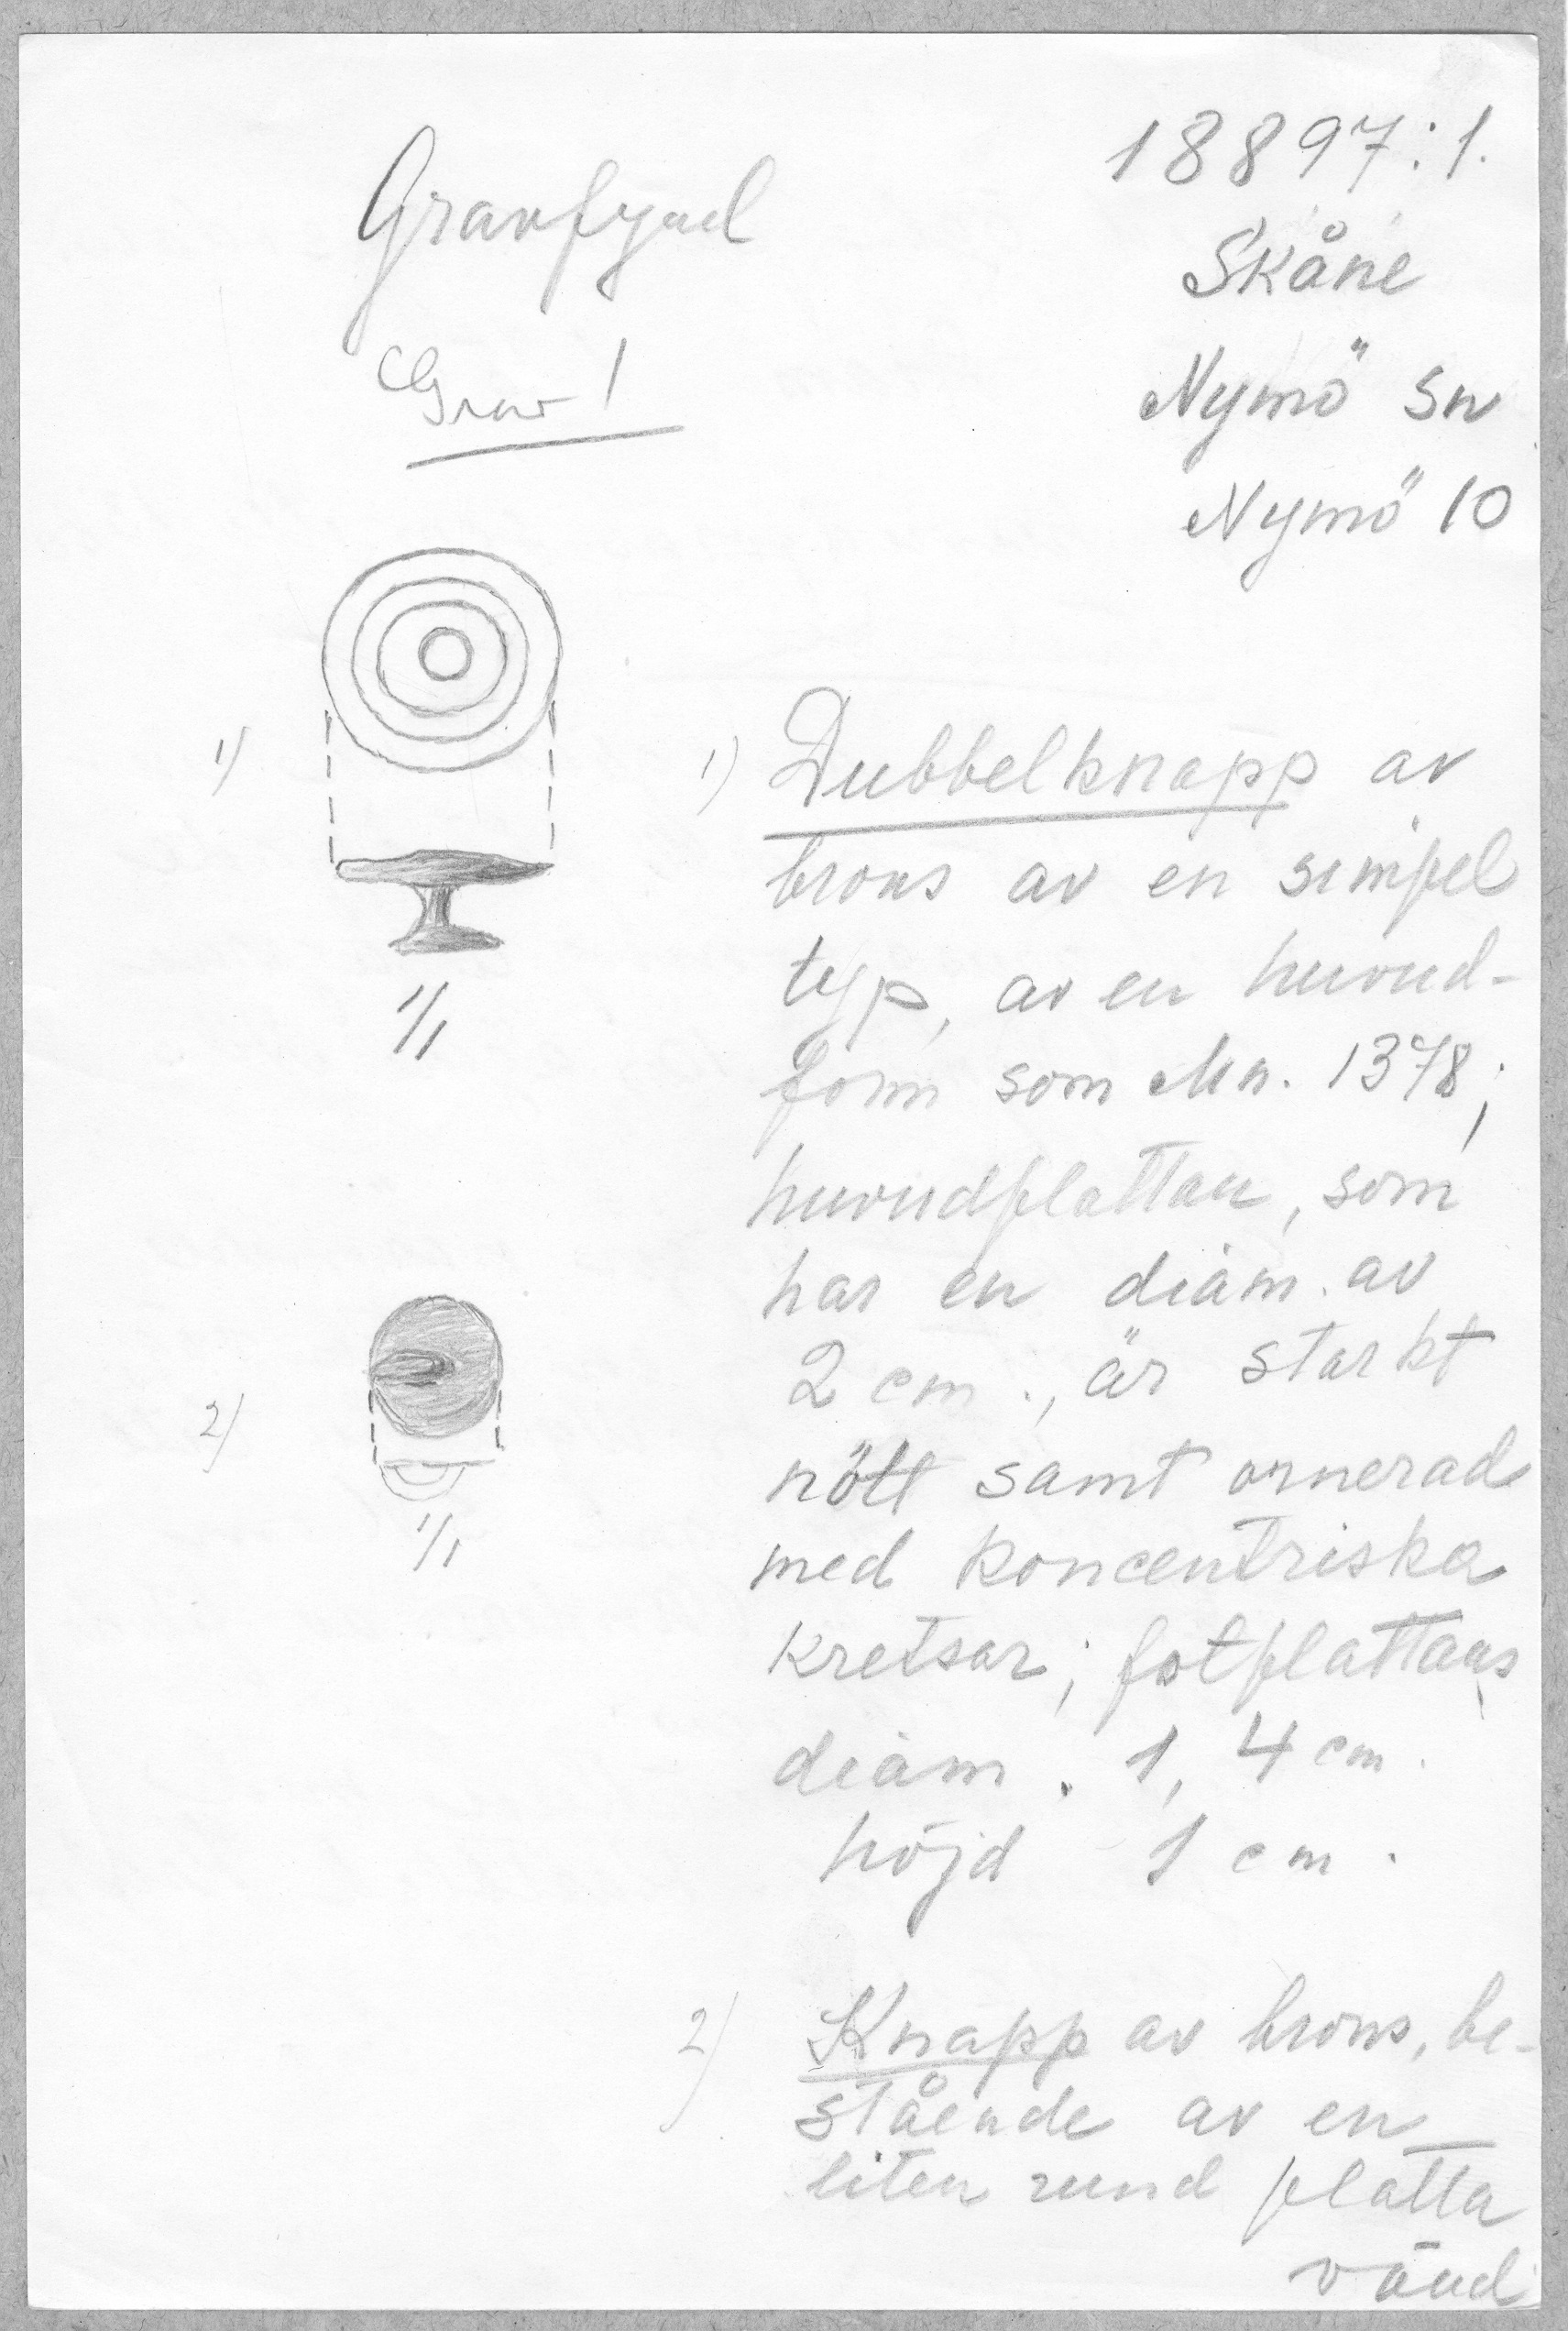 18897:1.
Gravfynd
Skåne
Grav 1
Nymö sn
Nymö 10
1)
1/1
1) Dubbelknapp av
brons av en simpel
typ, av en huvud-
form som Mn. 1378;
huvudplattan, som
har en diam. av
2 cm., är starkt
nött samt ornerad
med koncentriska
kretsar; fotplattans
diam. 1,4 cm.
höjd 1 cm.
2)
1/1
2) Knapp av brons, be-
stående av en
liten rund platta
vänd